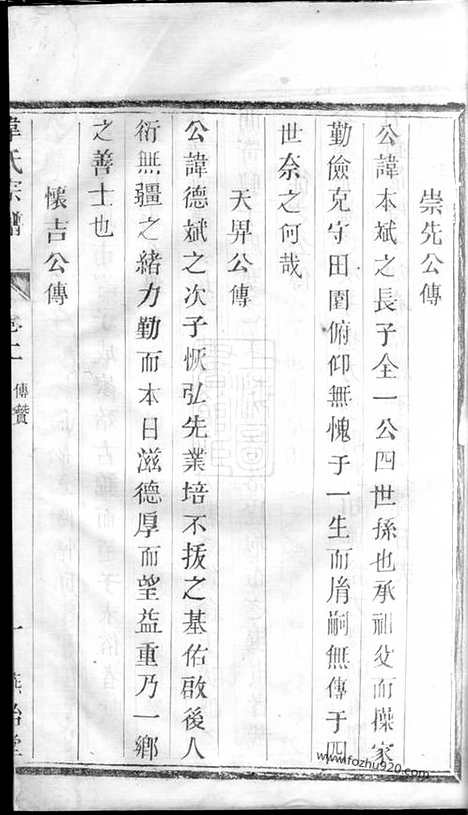 崇先公傳
公諱本斌之長子全一公四世孫也承祖父而操家
勤儉克守田園俯仰無愧于一生而胤嗣無傳于四
世奈之何哉
天畀公傳
公諱德斌之次子恢弘先業培不拔之基佑啟後人
衍無疆之緒力勤而本日滋德厚而望益重乃一鄉
之善士也
懷吉公傳
氏宗譜
卷二
傳贊
一
www.fozhu920.com